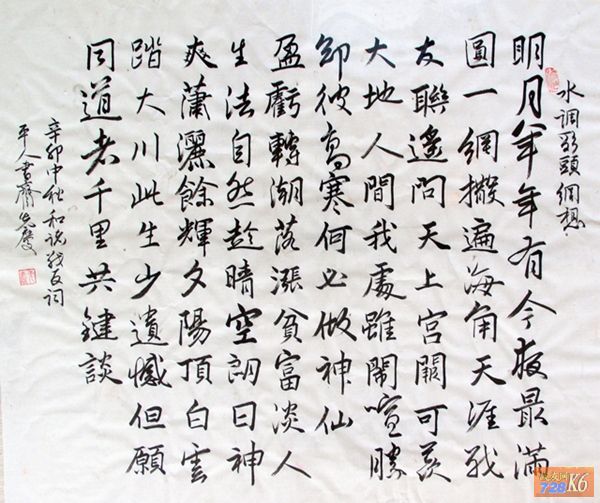 水调歌頭 網想
明月年年有今夜最滿
圓一網撒遍海角天涯戰
友聯邀問天上宮闕可羨
大地人間我處雖鬧喧勝
卻彼高寒何必做神仙
盈虧轉潮落漲貧富淡人
生法自然趁晴空朗日神
爽蕭灑餘輝夕陽頂白雲
踏大川此生少遺憾但願
同道老千里共鍵談
辛卯中秋和说战友词
平人書齋
728 K6